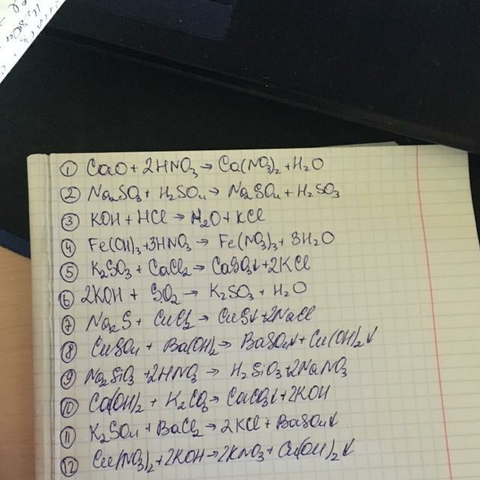 ① CaO + 2HNO₃ → Ca(NO₃)₂ + H₂O
② Na₂SO₃ + H₂SO₄ → Na₂SO₄ + H₂SO₃
③ KOH + HCl → H₂O + KCl
④ Fe(OH)₃ + 3HNO₃ → Fe(NO₃)₃ + 3H₂O
⑤ K₂SO₃ + CaCl₂ → CaSO₃↓ + 2KCl
⑥ 2KOH + SO₂ → K₂SO₃ + H₂O
⑦ Na₂S + CuCl₂ → CuS↓ + 2NaCl
⑧ CuSO₄ + Ba(OH)₂ → BaSO₄↓ + Cu(OH)₂↓
⑨ Na₂SiO₃ + 2HNO₃ → H₂SiO₃ + 2NaNO₃
⑩ Ca(OH)₂ + K₂CO₃ → CaCO₃↓ + 2KOH
⑪ K₂SO₄ + BaCl₂ → 2KCl + BaSO₄↓
⑫ Cu(NO₃)₂ + 2KOH → 2KNO₃ + Cu(OH)₂↓